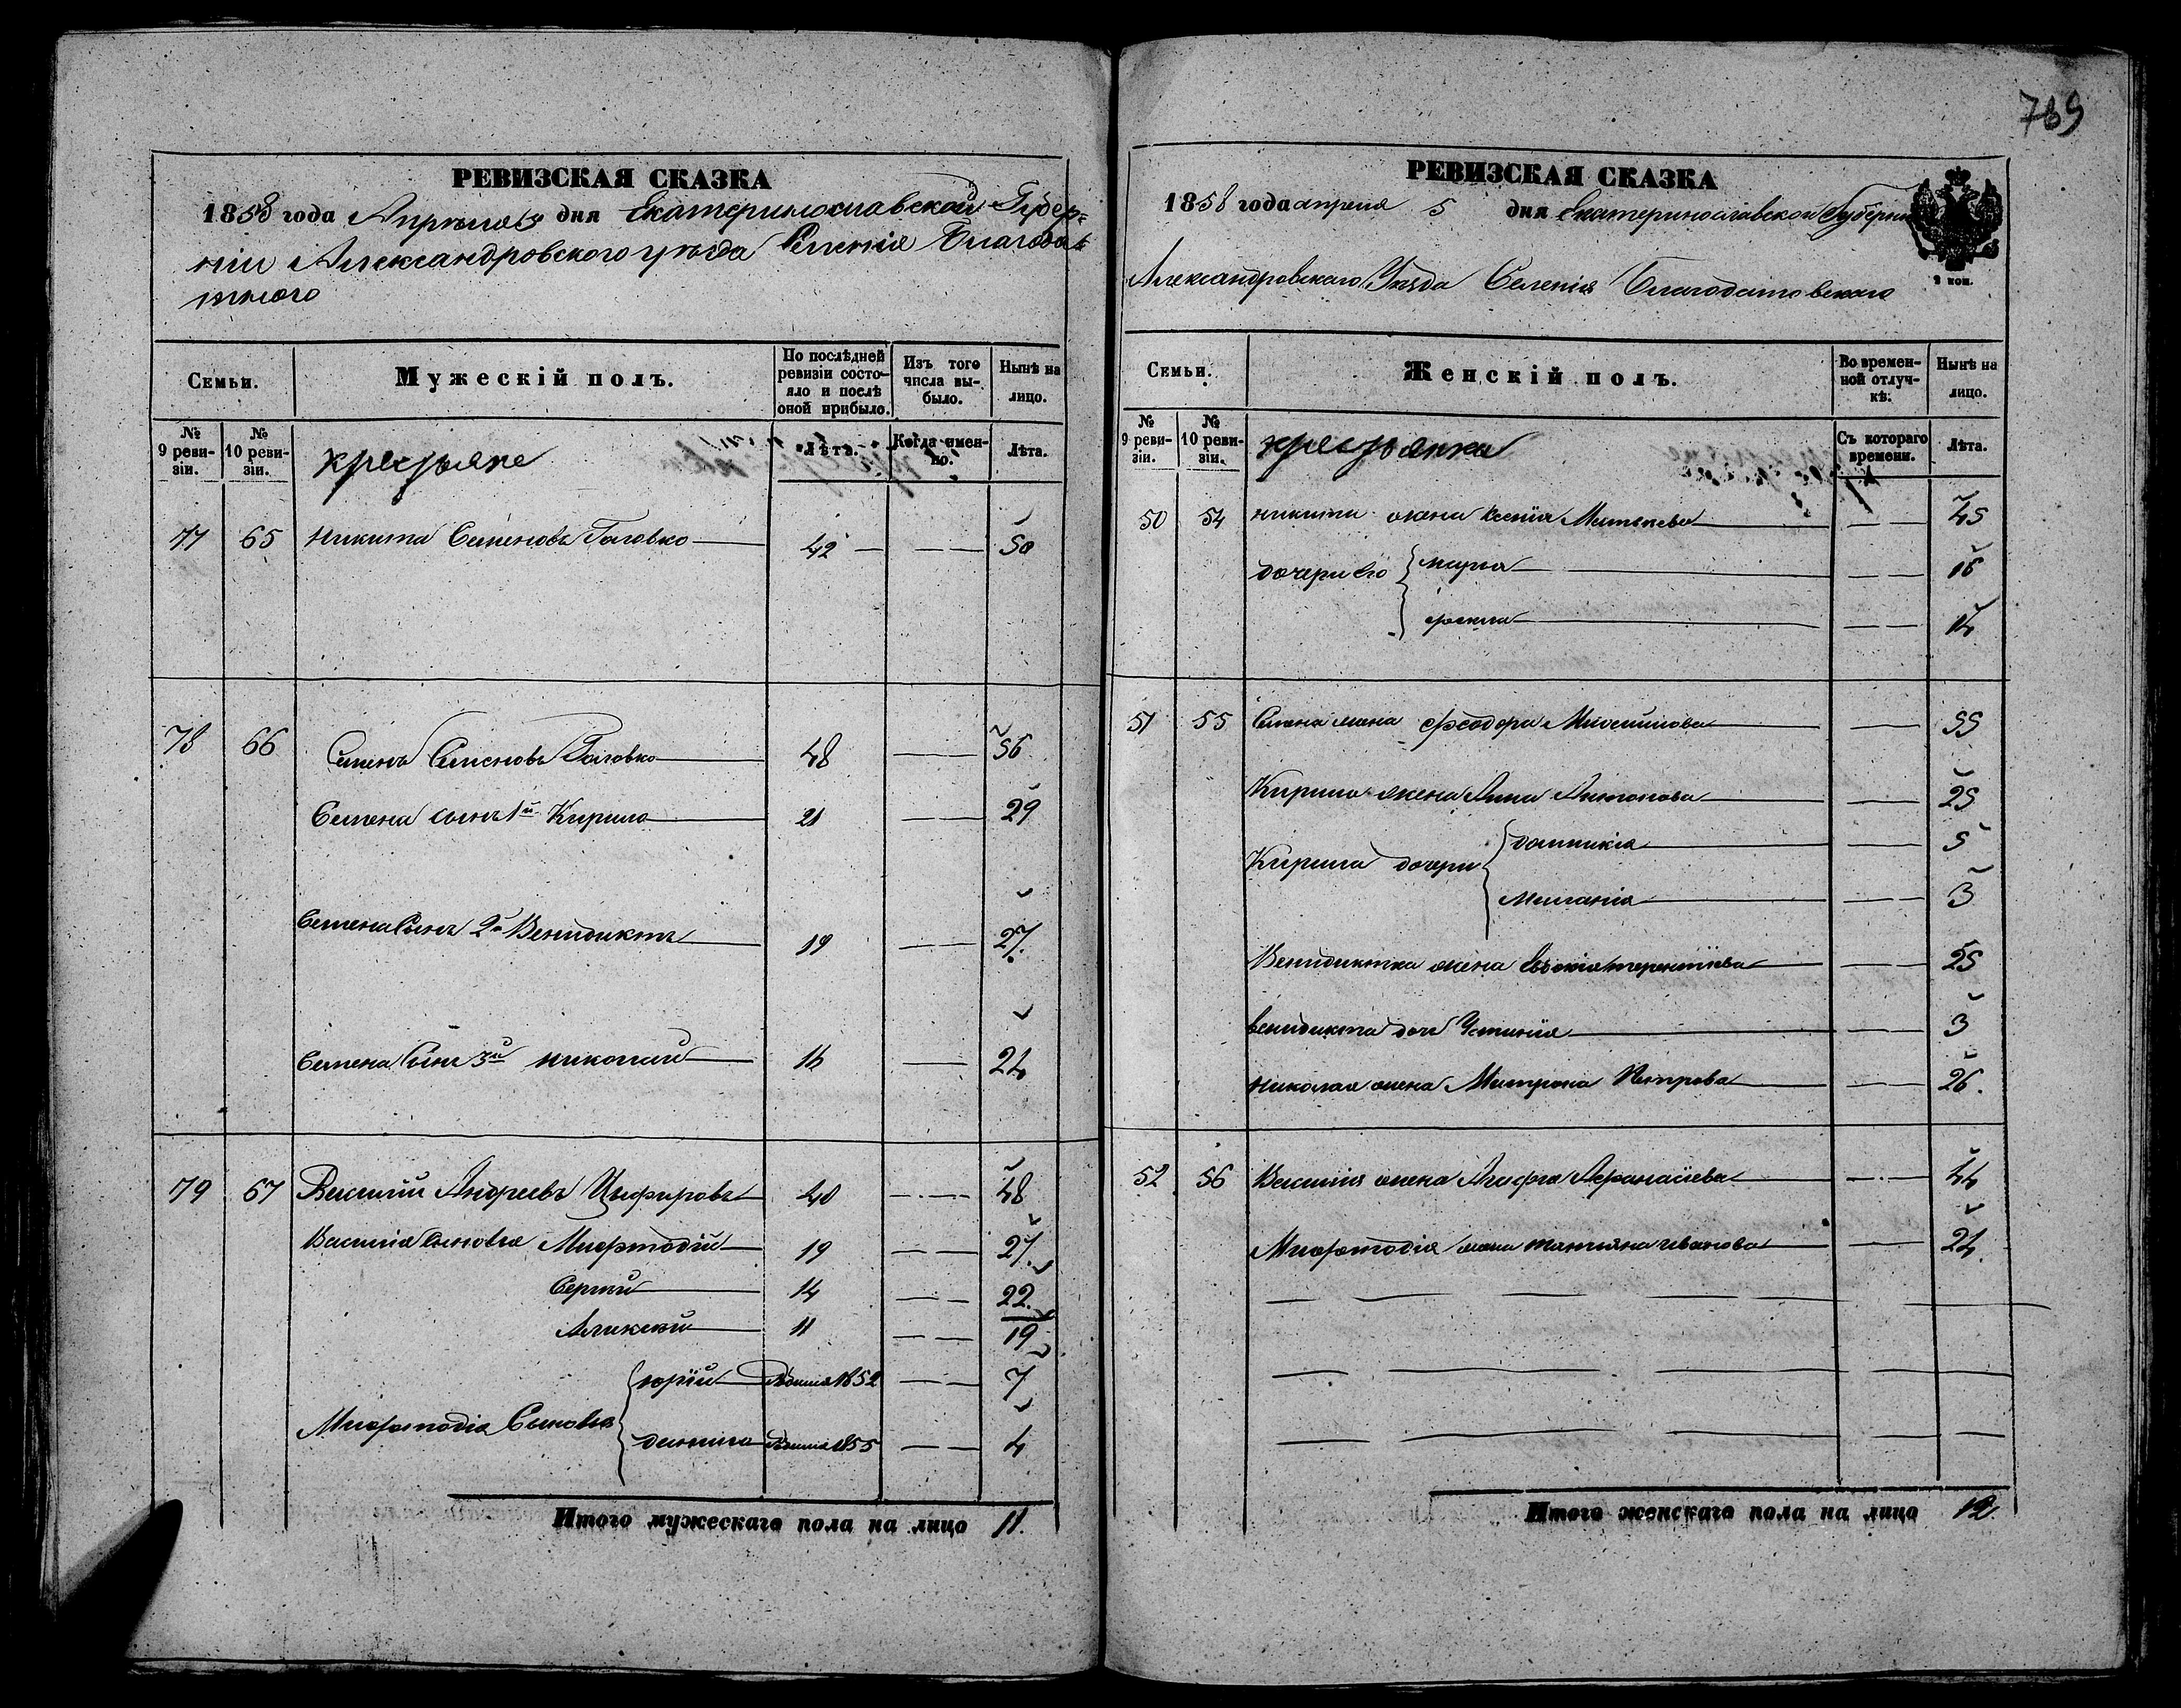 769
РЕВИЗСКАЯ СКАЗКА
1858 года Апреля 5 дня Екатеринославской Губер=
ніи Александровского уезда Селенія Благодат
ного
Семьи.
Мужескій полъ.
По послѣдней ревизіи состояло и послѣ оной прибыло.
Изъ того числа выбыло.
Нынѣ на лицо.
№ 9 ревизіи.
№ 10 ревизіи.
крестьяне
Лѣта.
Когда именно.
Лѣта.
77 65 Никита Семеновъ Головко 42 — — 50
78 66 Семенъ Семеновъ Головко 48 — 56
Семена сынъ 1й Кирило 21 — — 29
Семена Сынъ 2й Венидиктъ 19 — — 27.
Семена Сынъ 3й николай 16 — 24
79 67 Василий Андреевъ Цыфировъ 40 — — 48
Василія сыновья Мефтодій 19 — — 27.
Сергий 14 — — 22.
Алексей 11 — — 19
Мефтодія Сыновья
юрій 1852 — — 7
данило 1855 — — 4
Итого мужескаго пола на лицо 11.
РЕВИЗСКАЯ СКАЗКА
1858 года апреля 5 дня Екатеринославской Губерніи
2 коп.
Александровскаго Уезда Селенія Благодатовскаго
Семьи.
Женскій полъ.
Во временной отлучкѣ.
Нынѣ на лицо.
№ 9 ревизіи.
№ 10 ревизіи.
крестьянки
Съ котораго времени.
Лѣта.
50 54 никиты жена Ксенія Матвеева — — 45
дочери его марья — — 16
— — 14
51 55 Семена жена Феодора Максимова — 55
Кирила жена Анна Антонова — 25
Кирила дочери домникія — 5
Меланія — — 3
Венидикта жена Евдокія терентіева — — 25
венидикта доч Устинія — — 3
николая жена Матрона Петрова — — 26.
52 56 Василія жена Агафія Афанасіева — — 44
Мефтодія жена татияна иванова — 24.
Итого женскаго пола на лицо 12.